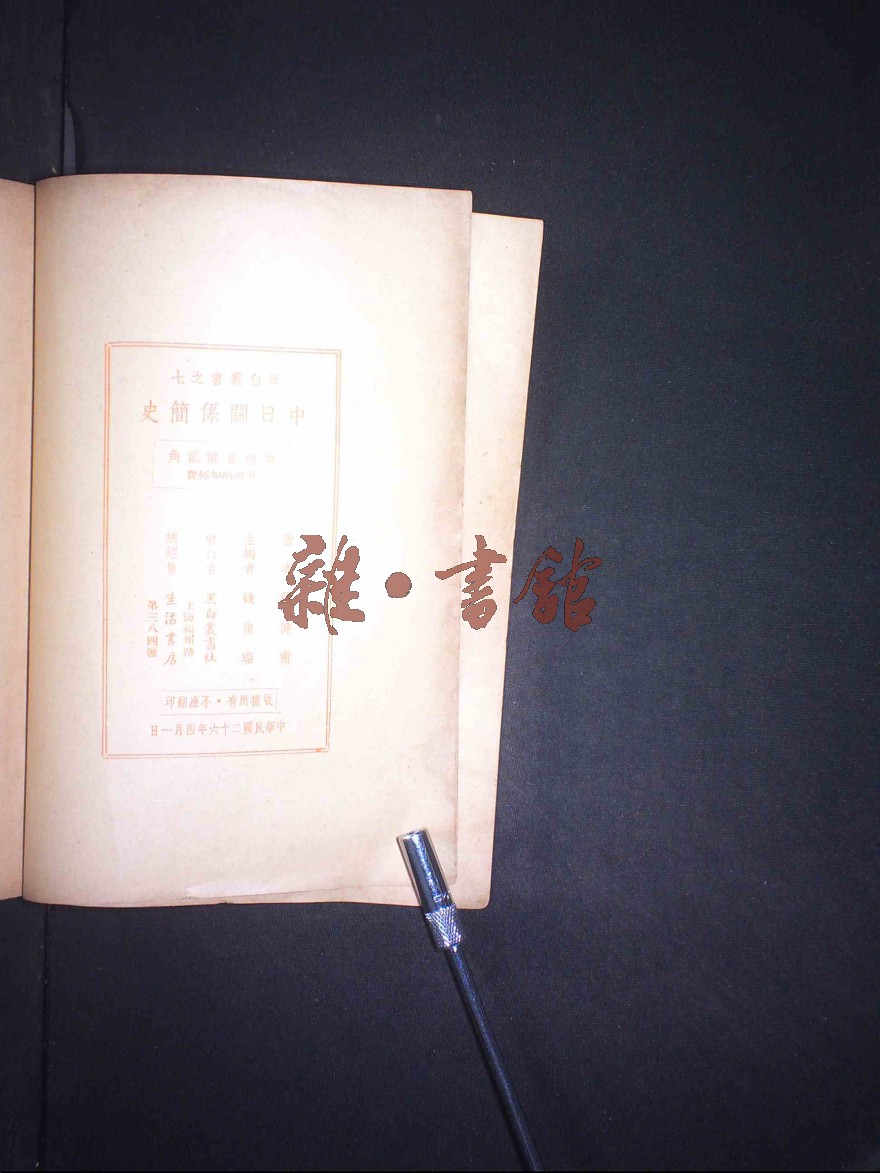 黑白叢書之七
中日關係簡史
角
主編者 錢俊瑞
發行者 黑白叢書社
總經售 生活書店
上海福州路
第三八四號
版權所有・不准翻印
中華民國二十六年四月一日
雜・書館